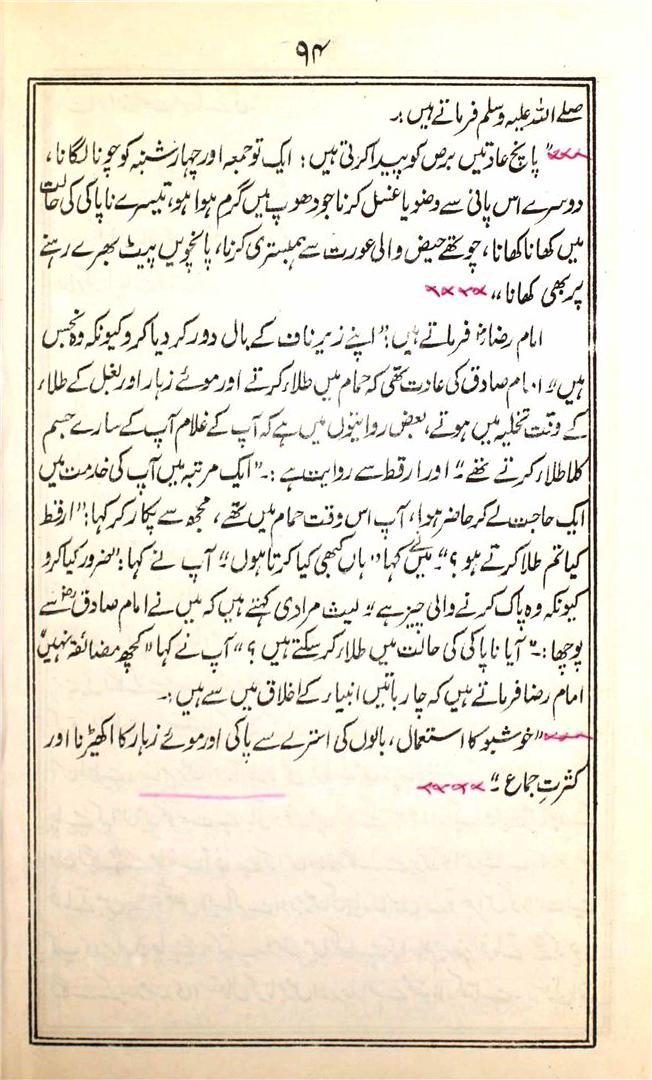 ۹۴
صلے اللہ علیہ وسلم فرماتے ہیں :۔
"پانچ عادتیں برص کو پیدا کرتی ہیں : ایک تو جمعہ اور چہار شنبہ کو چونا لگانا،
دوسرے اس پانی سے وضو یا غسل کرنا جو دھوپ میں گرم ہوا ہو، تیسرے ناپاکی کی حالت
میں کھانا کھانا، چوتھے حیض والی عورت سے ہمبستری کرنا، پانچویں پیٹ بھرے رہنے
پر بھی کھانا،،
امام رضاؑ فرماتے ہیں :"اپنے زیر ناف کے بال دور کر دیا کرو کیونکہ وہ نجس
ہیں" امام صادق کی عادت تھی کہ حمام میں طلاء کرتے اور موئے زہار اور بغل کے طلاء
کے وقت تخلیہ میں ہوتے، بعض روایتوں میں ہے کہ آپ کے غلام آپ کے سارے جسم
کا طلاء کرتے تھے۔" اور ارقط سے روایت ہے :۔" ایک مرتبہ میں آپ کی خدمت میں
ایک حاجت لے کر حاضر ہوا، آپ اس وقت حمام میں تھے، مجھ سے پکار کر کہا :"ارقط
کیا تم طلا کرتے ہو ؟"۔ میں نے کہا "ہاں کبھی کیا کرتا ہوں"۔ آپ نے کہا :"ضرور کیا کرو
کیونکہ وہ پاک کرنے والی چیز ہے" لیث مرادی کہتے ہیں کہ میں نے امام صادقؓ سے
پوچھا :۔" آیا ناپاکی کی حالت میں طلاء کر سکتے ہیں ؟" آپ نے کہا "کچھ مضائقہ نہیں"
امام رضا فرماتے ہیں کہ چار باتیں انبیاء کے اخلاق میں سے ہیں :۔
"خوشبو کا استعمال، بالوں کی استرے سے پاکی اور موئے زہار کا اکھیڑنا اور
کثرتِ جماع۔"